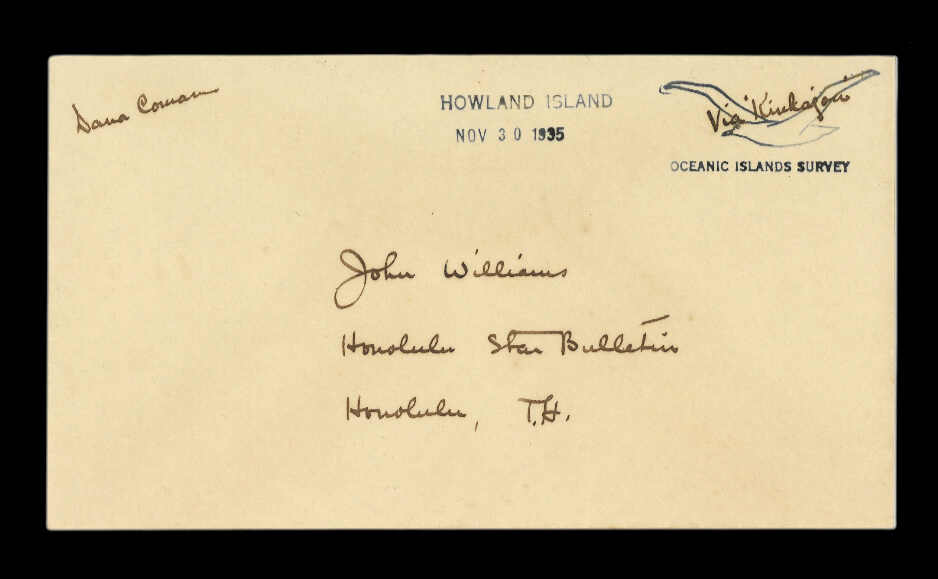 Dana Coman
HOWLAND ISLAND
NOV 30 1935
Via "Kinkajou"
OCEANIC ISLANDS SURVEY
John Williams
Honolulu Star Bulletin
Honolulu, T.H.